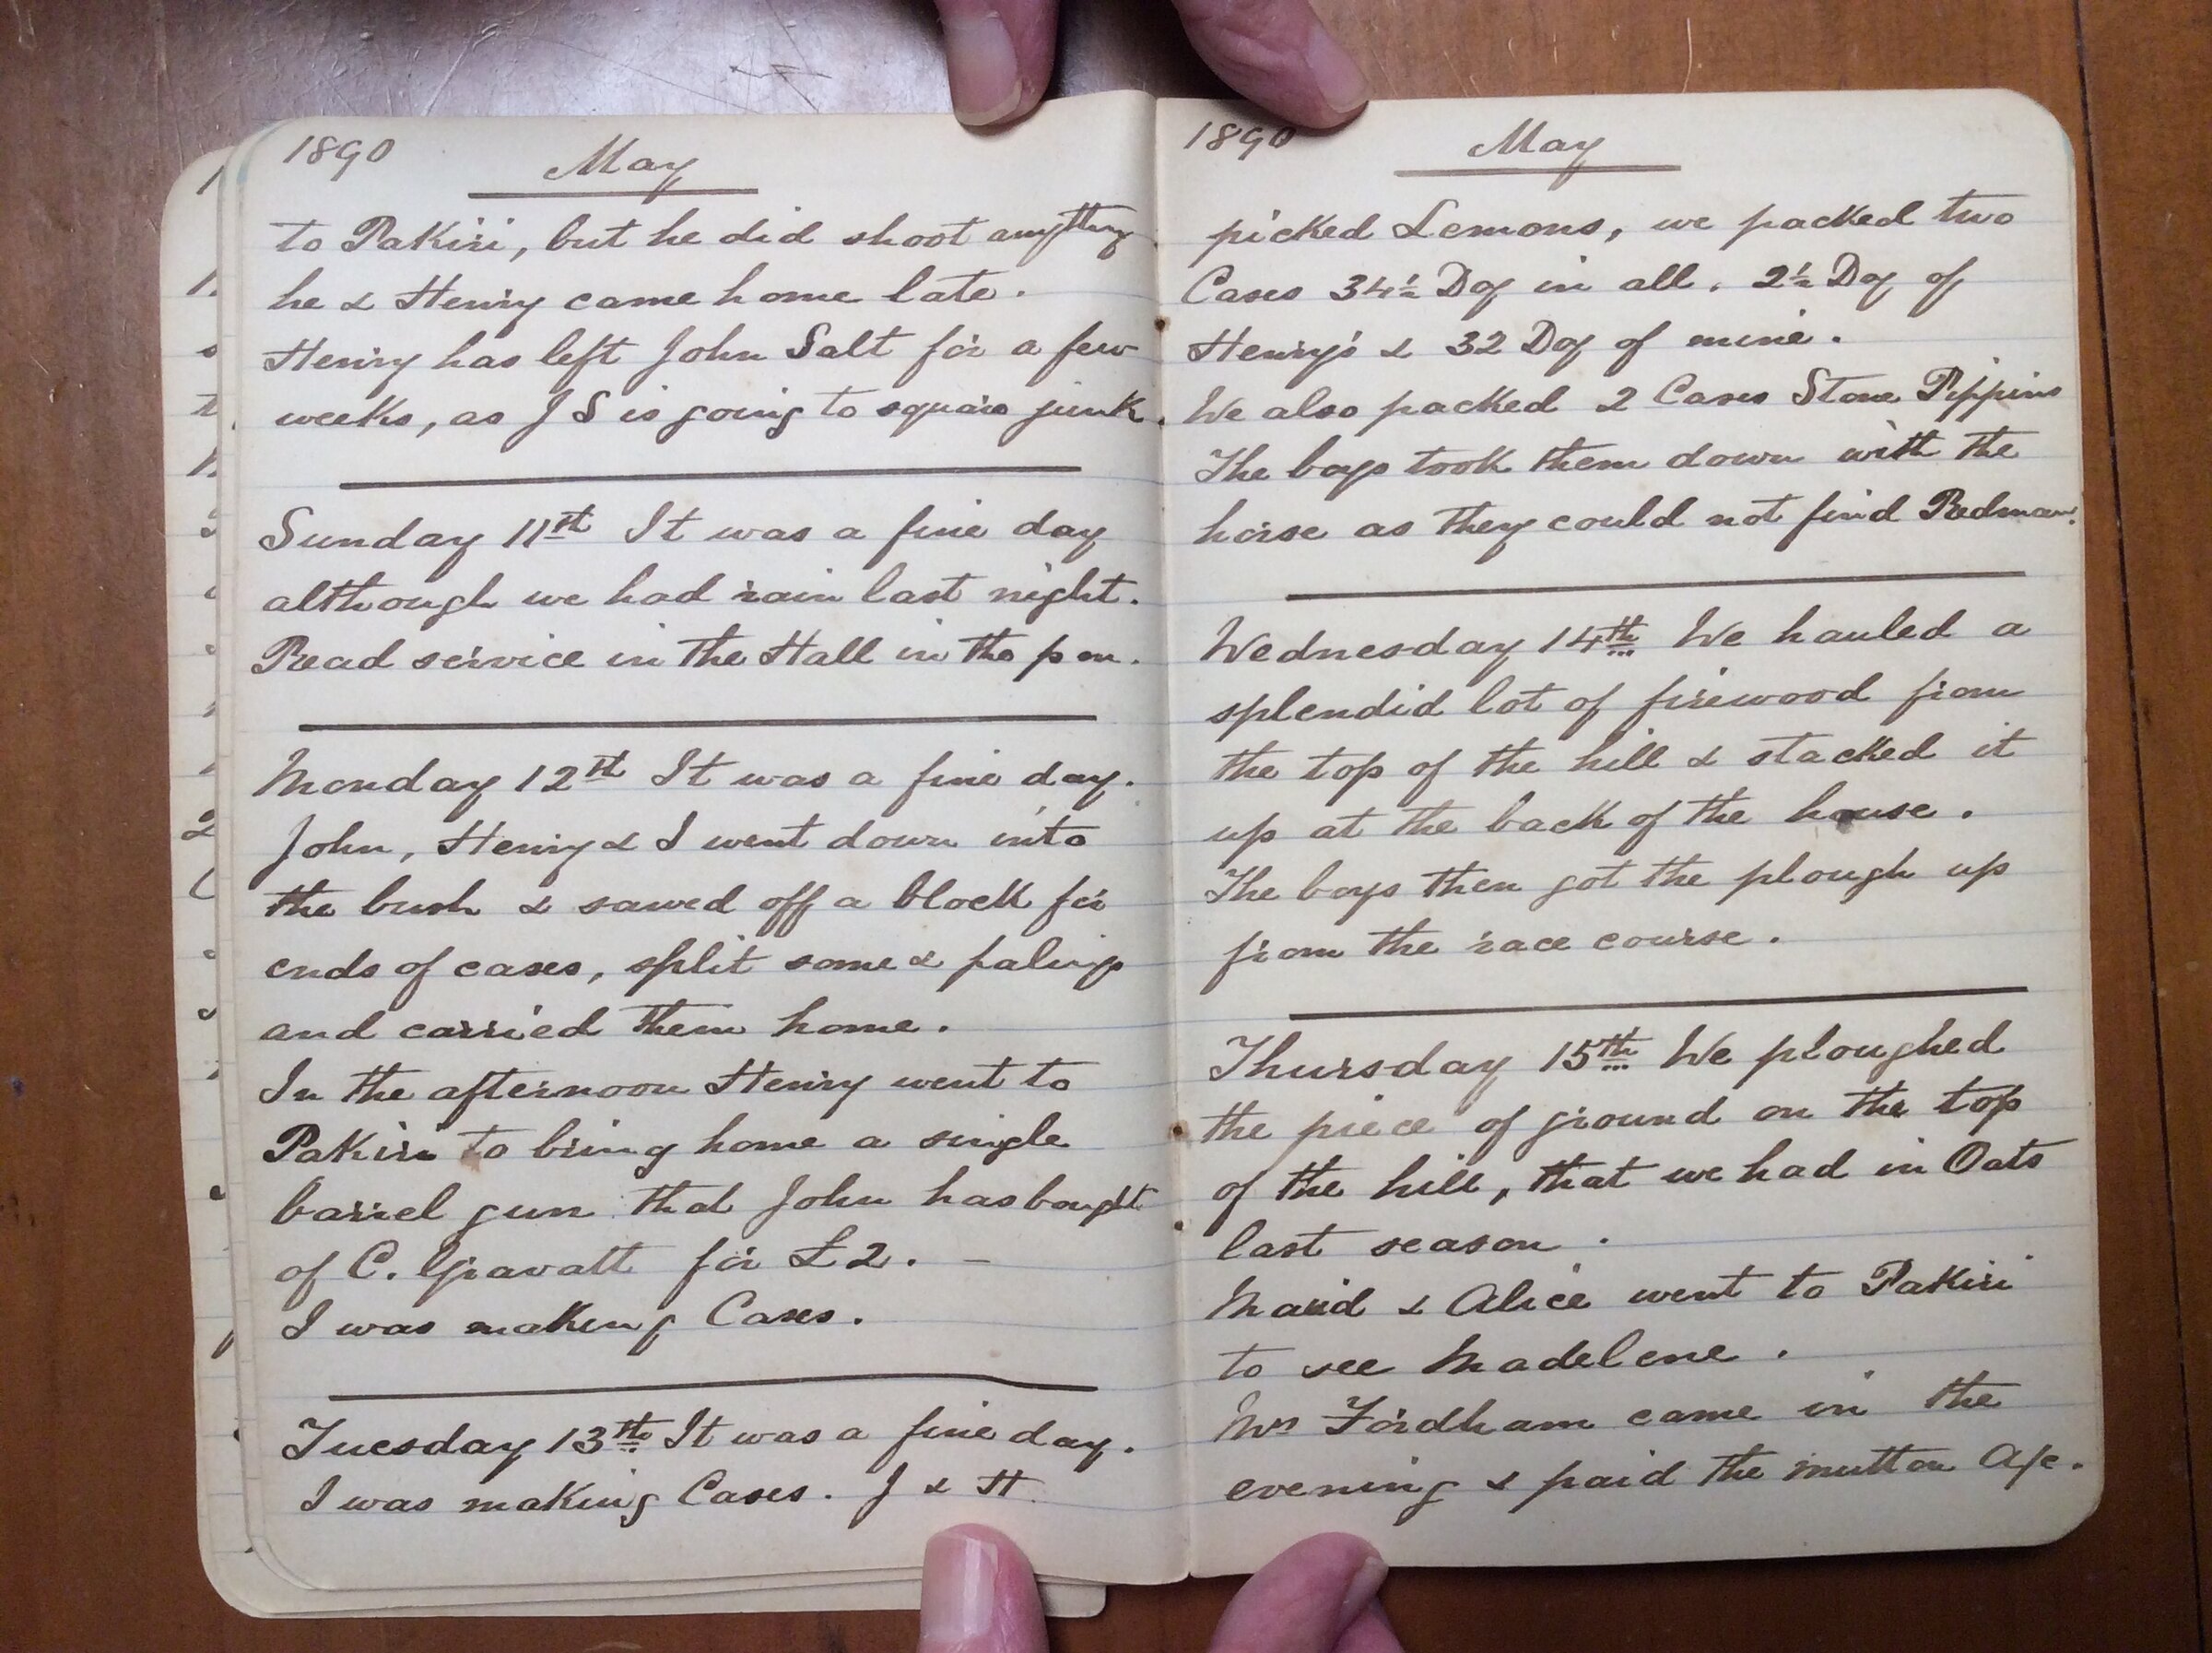 1890 May
to Pakiri, but he did shoot anything
he & Henry came home late.
Henry has left John Salt for a few
weeks, as J S is going to square junk.
Sunday 11st It was a fine day
although we had rain last night.
Read service in the Hall in the p m.
Monday 12st It was a fine day.
John, Henry & I went down into
the bush & sawed off a block for
ends of cases, split some & palings
and carried them home.
In the afternoon Henry went to
Pakiri to bring home a single
barrel gun that John has bought
of C. Gravatt for £2. –
I was making Cases.
Tuesday 13th It was a fine day.
I was making Cases. J & H
1890 May
picked Lemons, we packed two
Cases 34½ Doz in all. 2½ Doz of
Henry's & 32 Doz of mine.
We also packed 2 Cases Stone Pippins
The boys took them down with the
horse as they could not find Redman.
Wednesday 14th We hauled a
splendid lot of firewood from
the top of the hill & stacked it
up at the back of the house.
The boys then got the plough up
from the race course.
Thursday 15th We ploughed
the piece of ground on the top
of the hill, that we had in Oats
last season.
Maud & Alice went to Pakiri
to see Madelene.
Fordham came in the
evening & paid the mutton A/c.